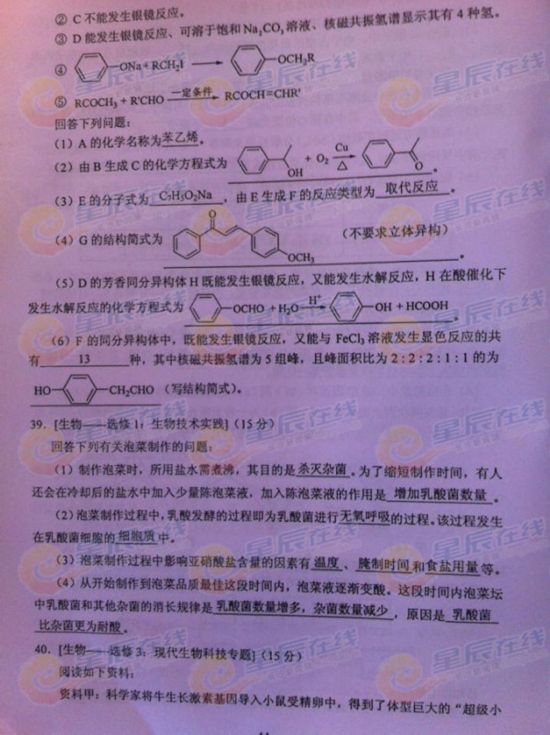 ② C不能发生银镜反应。
③ D能发生银镜反应、可溶于饱和Na₂CO₃溶液、核磁共振氢谱显示其有4种氢。
④ —ONa+RCH₂I → —OCH₂R
⑤ RCOCH₃+R'CHO 一定条件→ RCOCH=CHR'
回答下列问题:
(1) A的化学名称为苯乙烯。
(2) 由B生成C的化学方程式为 OH + O₂ Cu △ → O 。
(3) E的分子式为 C₇H₅O₂Na ,由E生成F的反应类型为 取代反应 。
(4) G的结构简式为 O OCH₃ (不要求立体异构)
(5) D的芳香同分异构体H既能发生银镜反应,又能发生水解反应,H在酸催化下
发生水解反应的化学方程式为 —OCHO+H₂O H⁺→ —OH+HCOOH 。
(6) F的同分异构体中,既能发生银镜反应,又能与FeCl₃溶液发生显色反应的共
有 13 种,其中核磁共振氢谱为5组峰,且峰面积比为2:2:2:1:1的为
HO— —CH₂CHO (写结构简式)。
39. [生物——选修1:生物技术实践] (15分)
回答下列有关泡菜制作的问题:
(1) 制作泡菜时,所用盐水需煮沸,其目的是杀灭杂菌。为了缩短制作时间,有人
还会在冷却后的盐水中加入少量陈泡菜液,加入陈泡菜液的作用是 增加乳酸菌数量 。
(2) 泡菜制作过程中,乳酸发酵的过程即为乳酸菌进行无氧呼吸的过程。该过程发生
在乳酸菌细胞的 细胞质 中。
(3) 泡菜制作过程中影响亚硝酸盐含量的因素有 温度 、 腌制时间 和食盐用量 等。
(4) 从开始制作到泡菜品质最佳这段时间内,泡菜液逐渐变酸。这段时间内泡菜坛
中乳酸菌和其他杂菌的消长规律是 乳酸菌数量增多,杂菌数量减少 ,原因是 乳酸菌
比杂菌更为耐酸 。
40. [生物——选修3:现代生物科技专题] (15分)
阅读如下资料:
资料甲:科学家将牛生长激素基因导入小鼠受精卵中,得到了体型巨大的“超级小
星辰在线